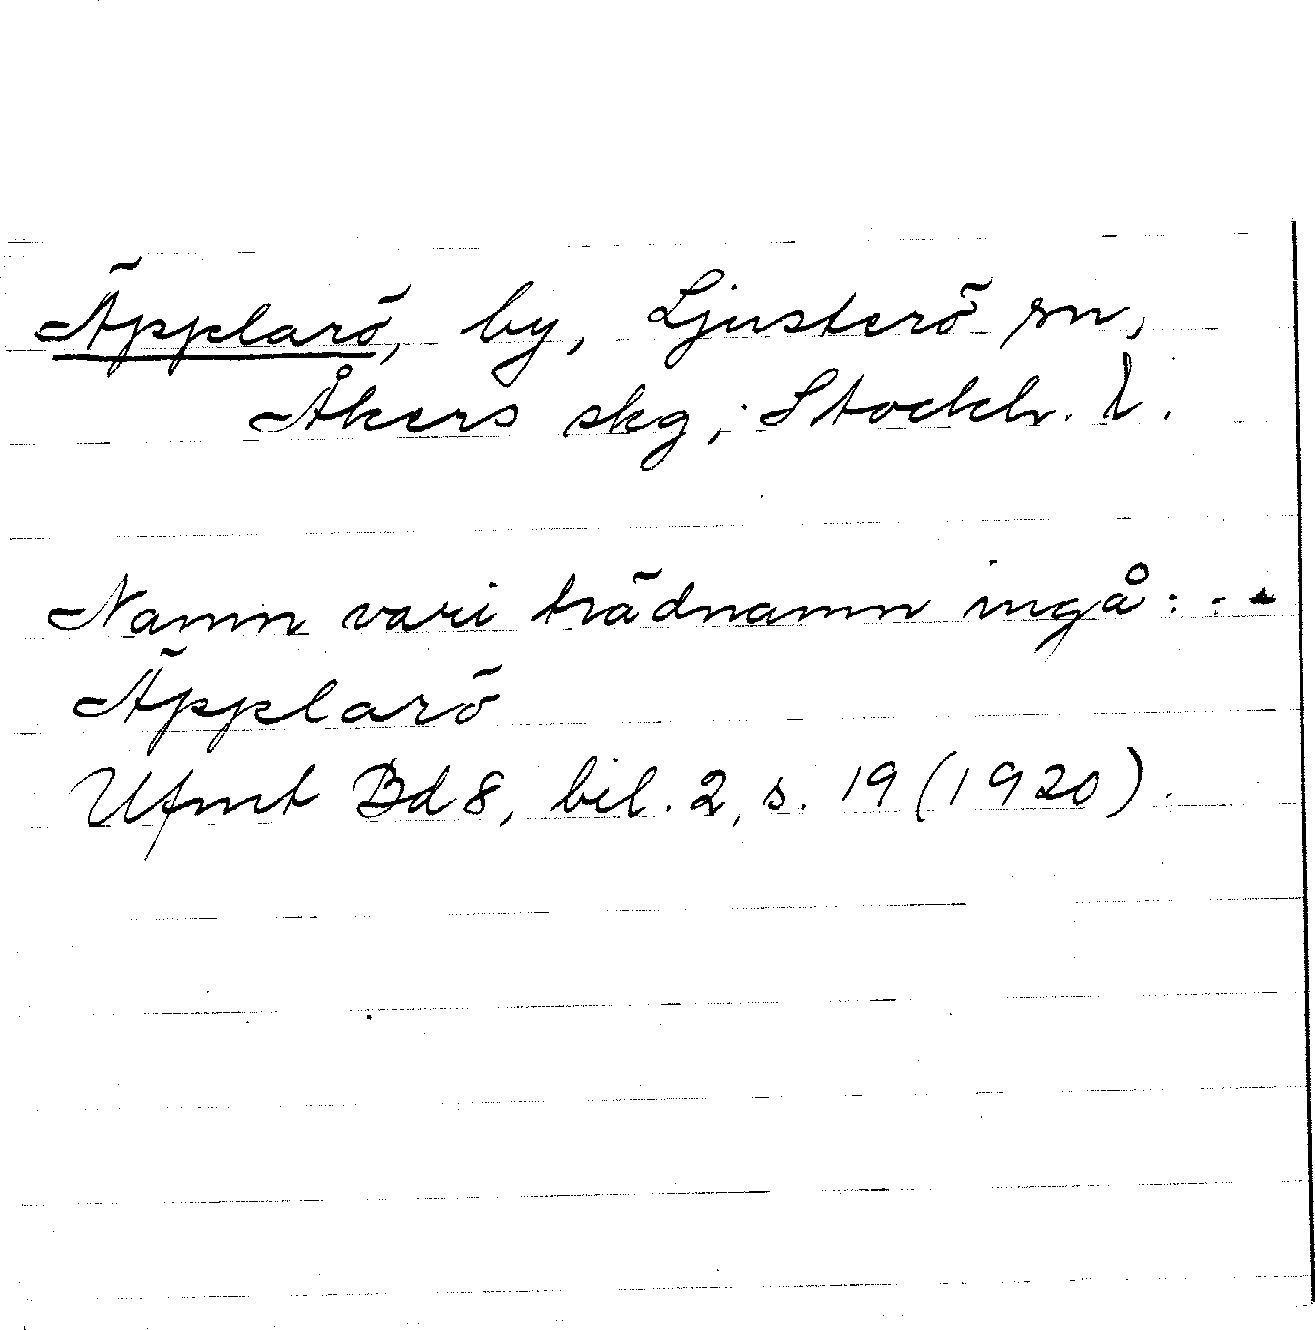 Äpplarö, by, Ljusterö sn,
Åkers skg, Stockh. l.
Namn vari trädnamn ingå: . -
Äpplarö
Ufmt Bd 8, bil. 2, s. 19 (1920).